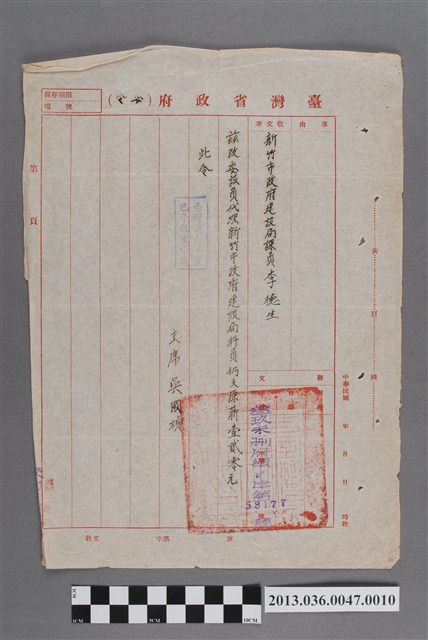 臺灣省政府（令 委）
保存期限
號
事由
收文者
新竹市政府建設局課員李德生
該改委該員代理新竹市政府建設局科員仍支原薪壹貳零元
此令
主席 吳國禎
文
中華民國 年 月 日 時
第 頁
裝 訂 線
58177
收文 字第 號
1CM 5CM 10CM
2013.036.0047.0010